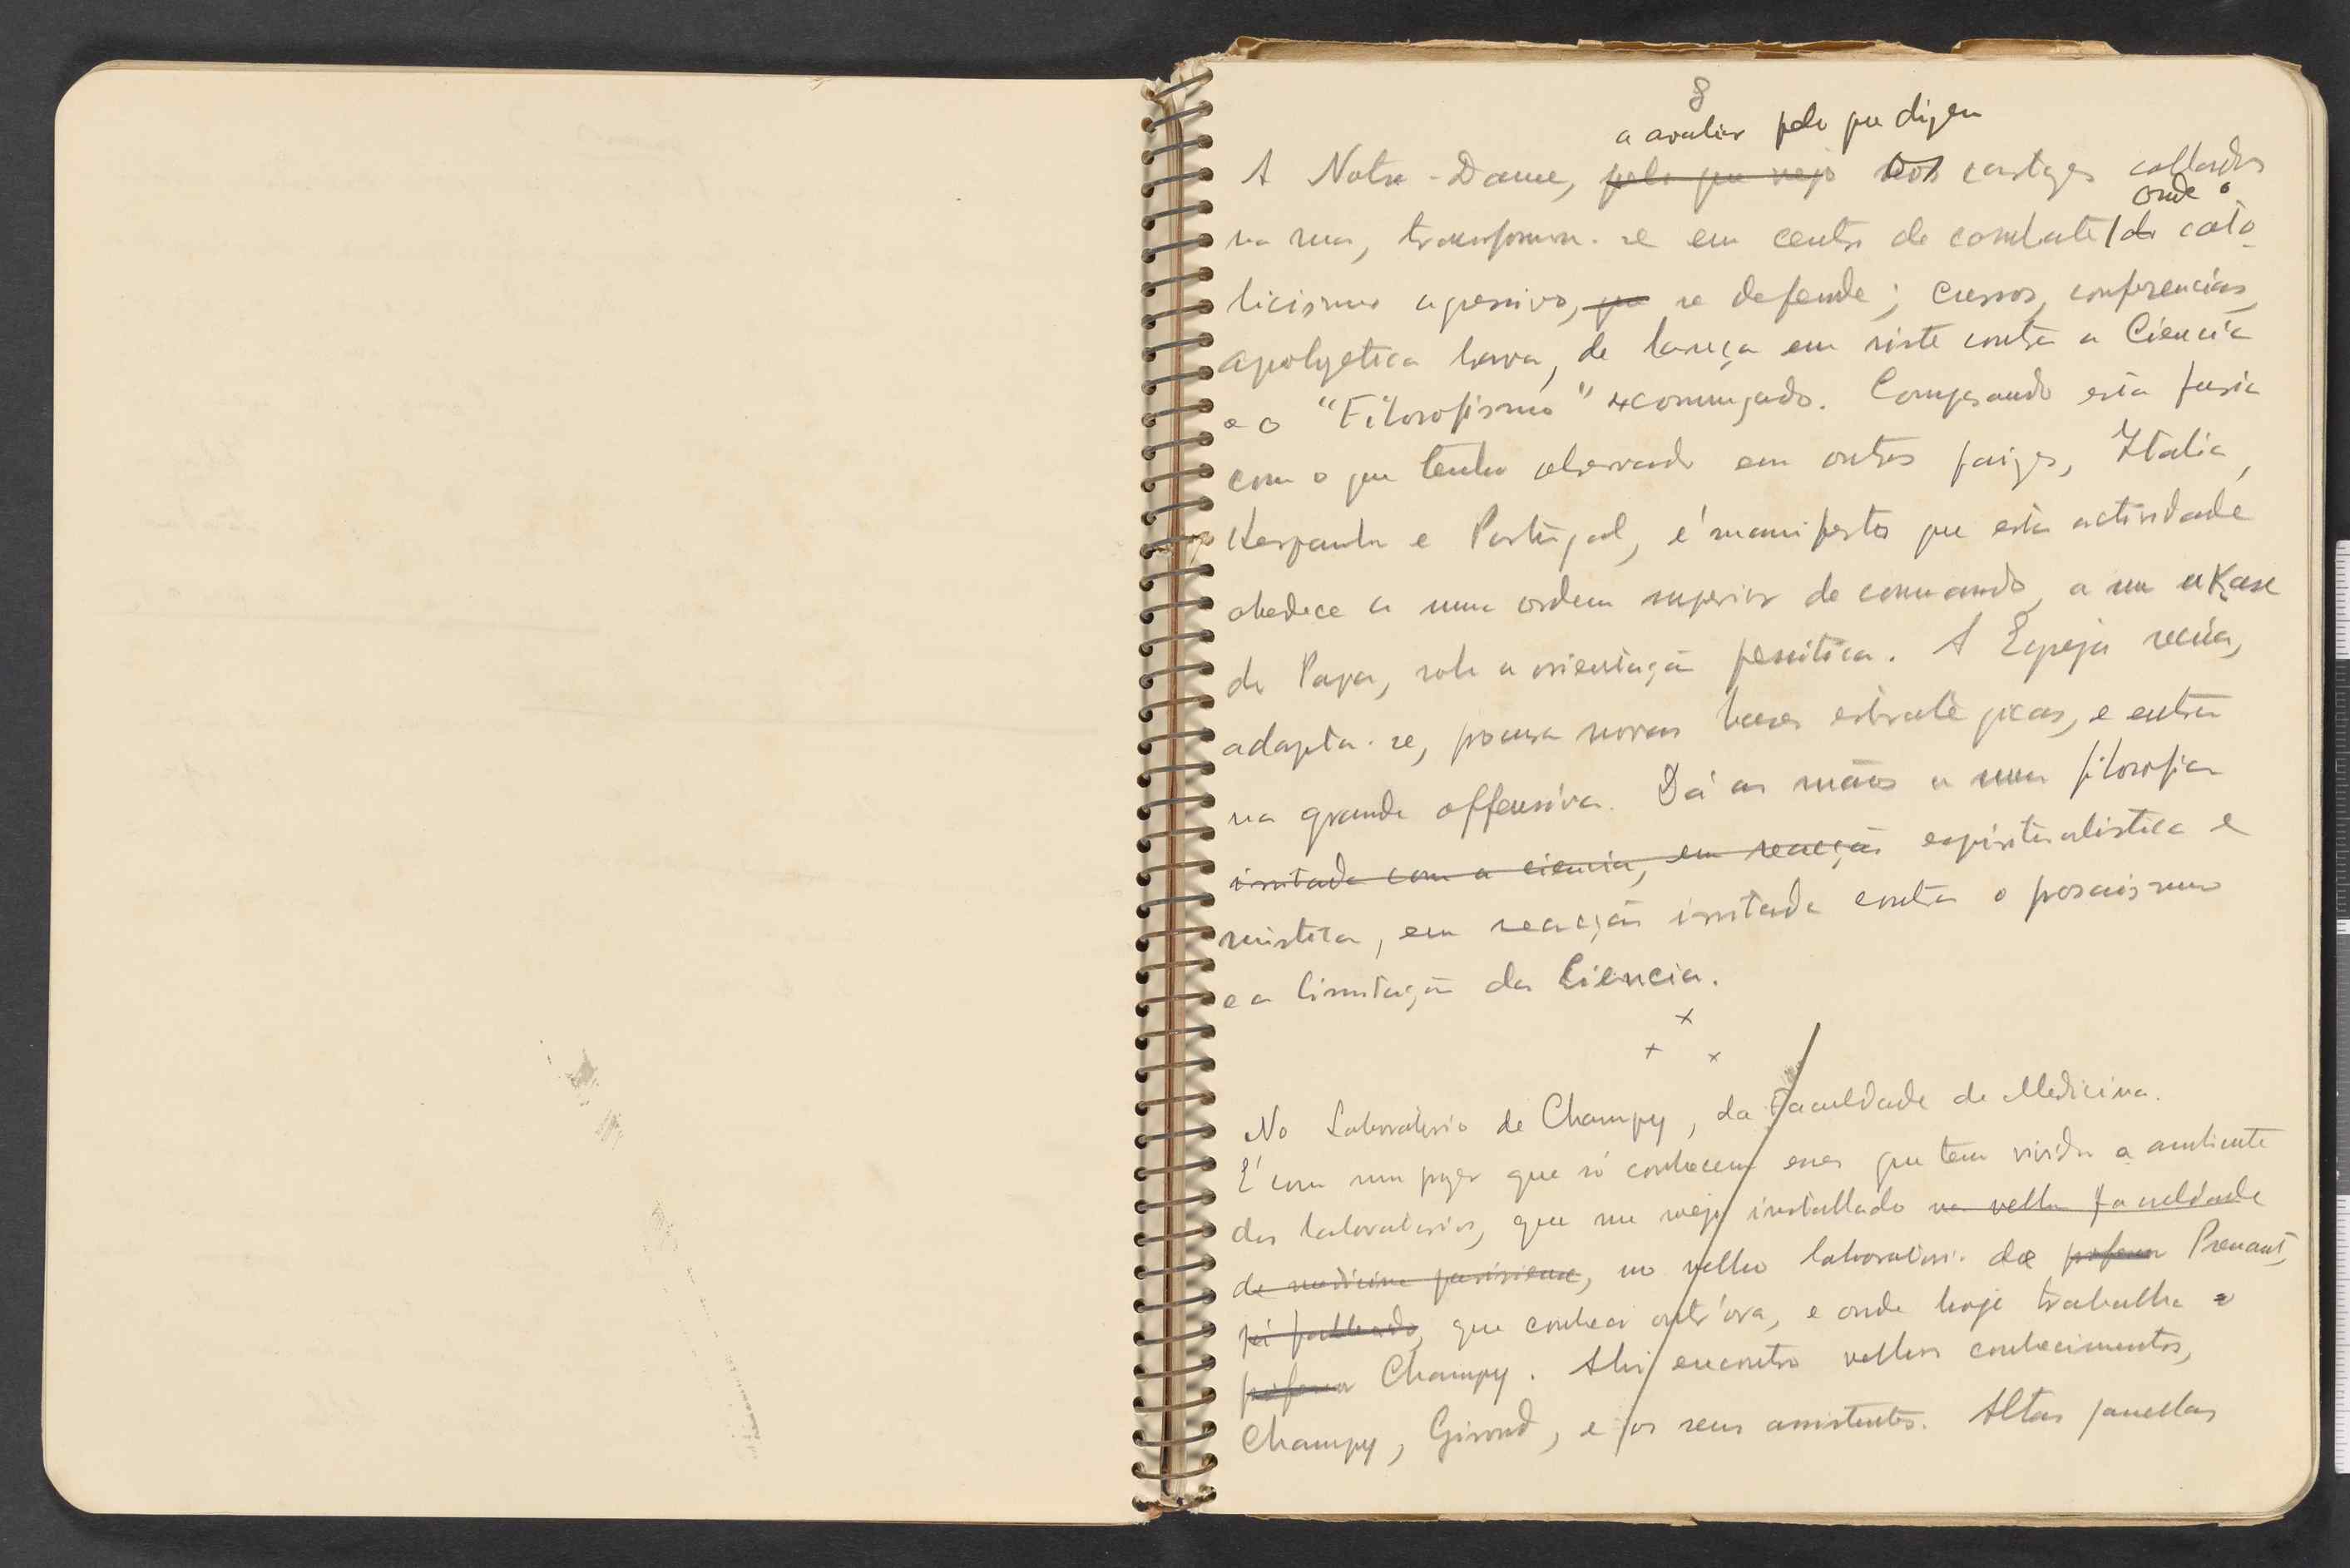 8
a avaliar pelo que dizem
A Notre-Dame, pelo que vejo nos cartazes collados
onde o
na rua, transformou-se em centro de combate / do cato-
licismo agressivo, que se defende; cursos, conferencias,
apologetica brava, de lança em riste contra a Ciencia
e o "Filosofismo" excomungado. Comparando esta furia
com o que tenho observado em outros paizes, Italia,
Hespanha e Portugal, é manifesto que esta actividade
obedece a uma ordem superior de comando, a um ukase
do Papa, sob a orientação jesuitica. A Egreja recúa,
adapta-se, procura novas bases estratégicas, e entra
na grande offensiva. Dá as mãos a uma filosofia
irritada com a ciencia, em reacção espiritualistica e
mistica, em reacção irritada contra o prosaismo
e a limitação da Ciencia.
x
x x
No Laboratorio de Champy, da Faculdade de Medicina.
É com um prazer que só conhecem esses que tem vivido o ambiente
dos laboratorios, que me vejo installado na velha faculdade
de medicina parisiense, no velho laboratorio de professor Prenant,
já fallecido, que conheci outr'ora, e onde hoje trabalha o
professor Champy. Ahi encontro velhos conhecimentos,
Champy, Giroud, e os seus assistentes. Altas janellas